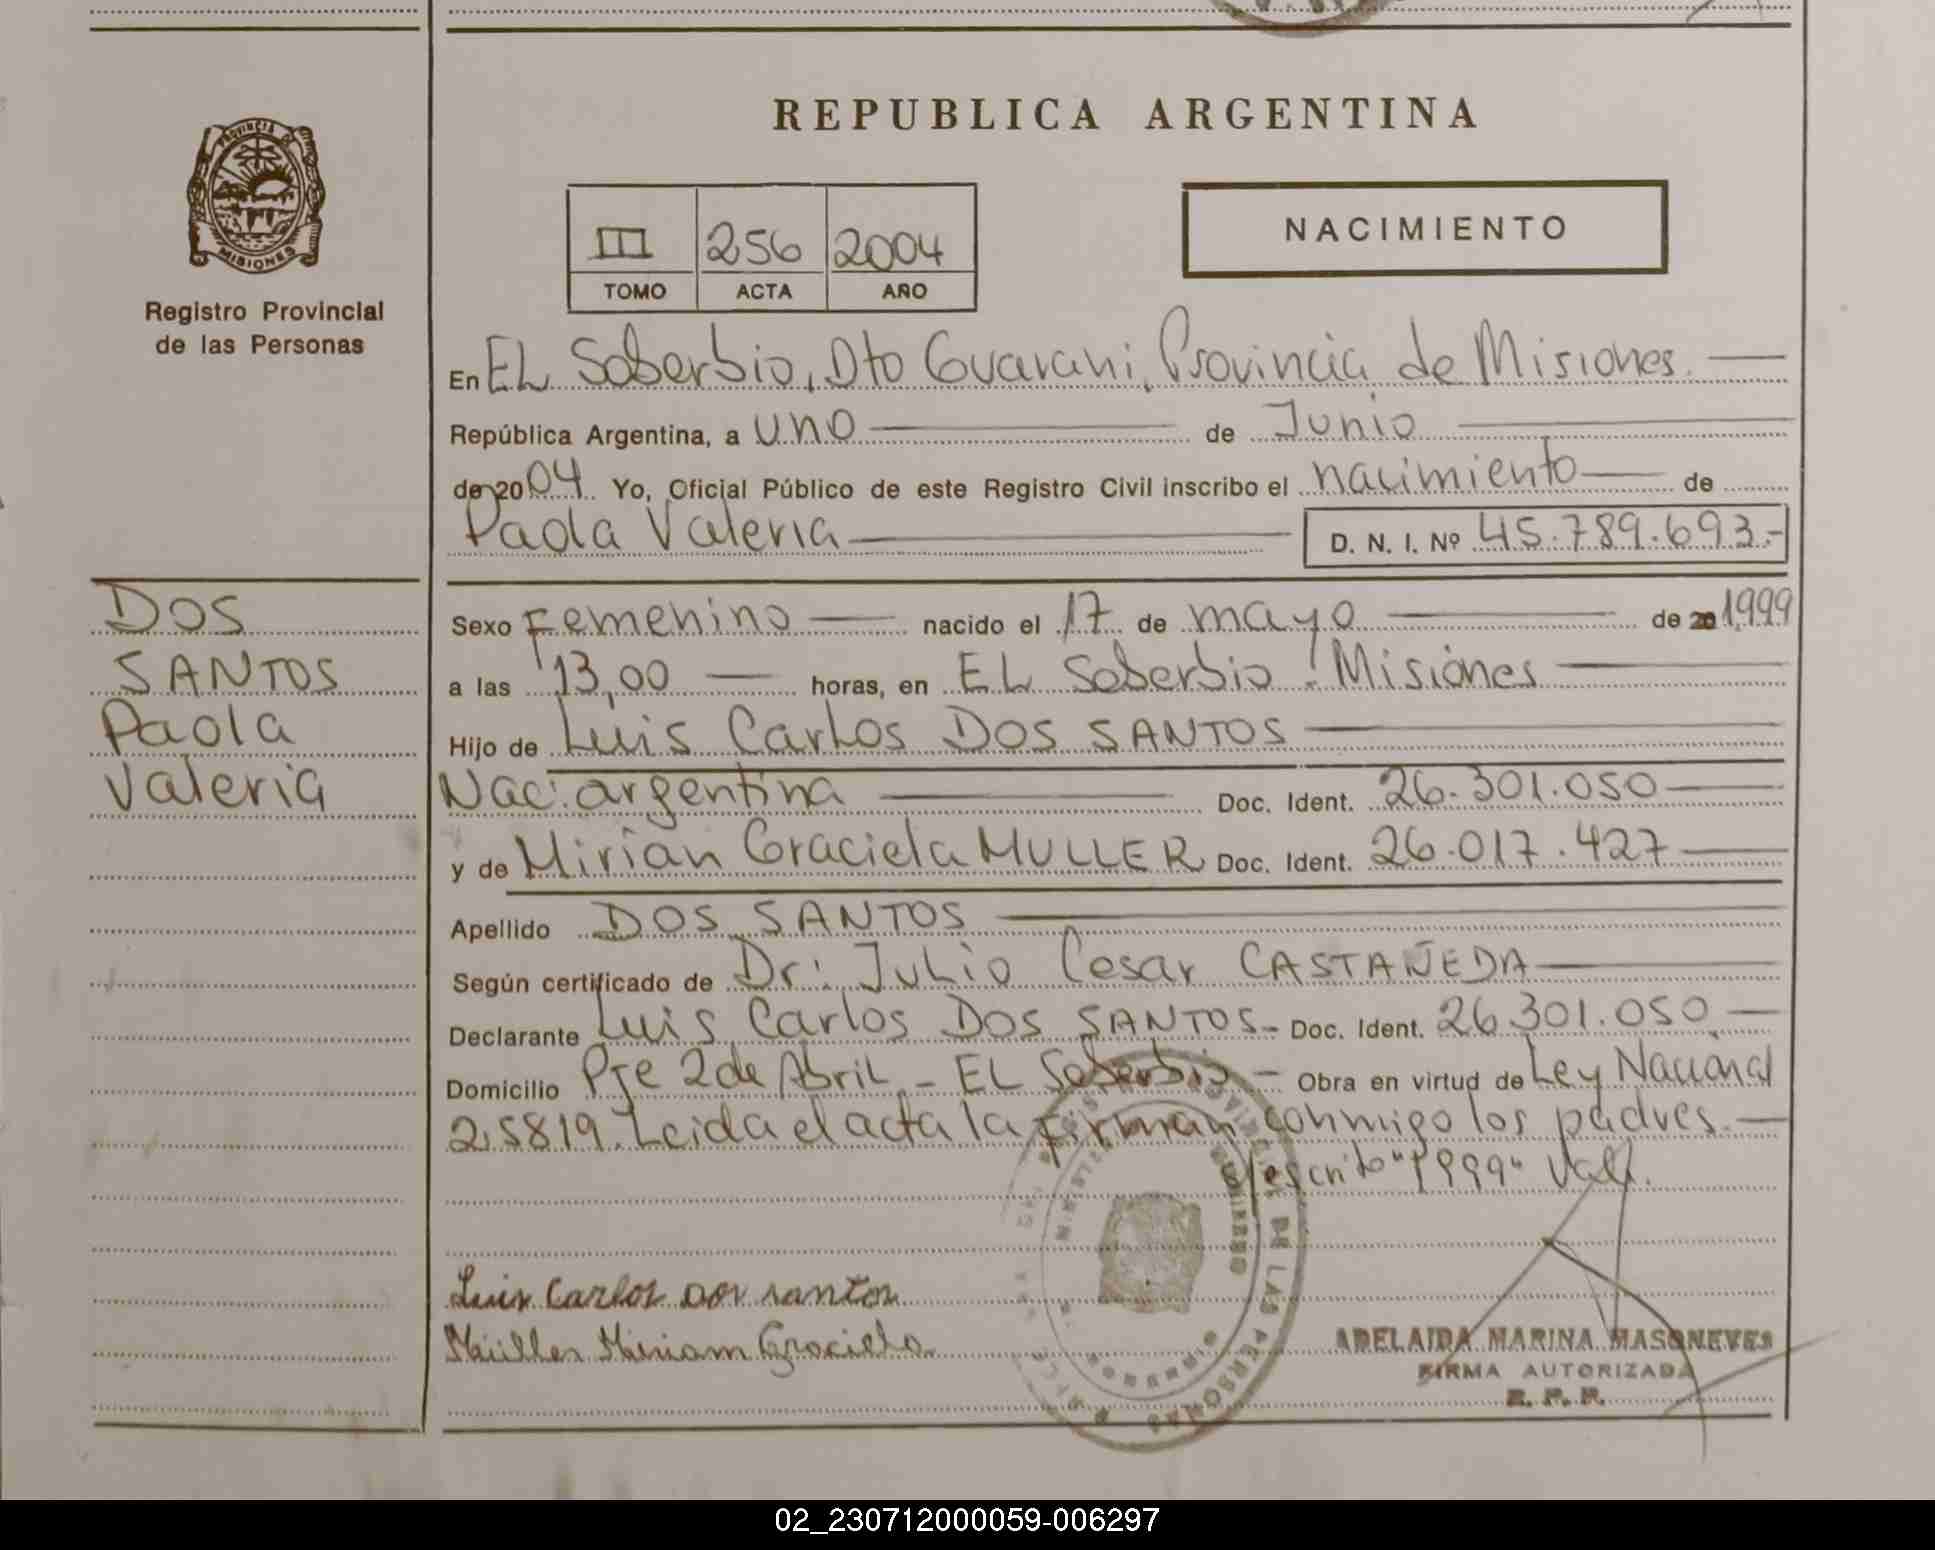 REPUBLICA ARGENTINA
PROVINCIA DE
MISIONES
Registro Provincial
de las Personas
III 256 2004
TOMO ACTA AÑO
NACIMIENTO
En EL Soberbio, Dto Guarani, Provincia de Misiones.
República Argentina, a uno de Junio
de 2004 Yo, Oficial Público de este Registro Civil inscribo el nacimiento de
Paola Valeria D. N. I. Nº 45.789.693.-
DOS
SANTOS
Paola
Valeria
Sexo Femenino nacido el 17 de mayo de 20 1999
a las 13,00 horas, en EL Soberbio - Misiones
Hijo de Luis Carlos DOS SANTOS
Nac: argentina Doc. Ident. 26.301.050
y de Mirian Graciela MULLER Doc. Ident. 26.017.427
Apellido DOS SANTOS
Según certificado de Dr: Julio Cesar CASTAÑEDA
Declarante Luis Carlos DOS SANTOS- Doc. Ident. 26.301.050
Domicilio Pje 2 de Abril - EL Soberbio - Obra en virtud de Ley Nacional
25819. Leida el acta la firman conmigo los padres.
s/escrito "1999" Vale.
Luis Carlos Dos santos
Müller Miriam Graciela
ADELAIDA MARINA MASONEVES
FIRMA AUTORIZADA
R. P. P.
DE LAS PERSONAS
MISIONES
02_230712000059-006297